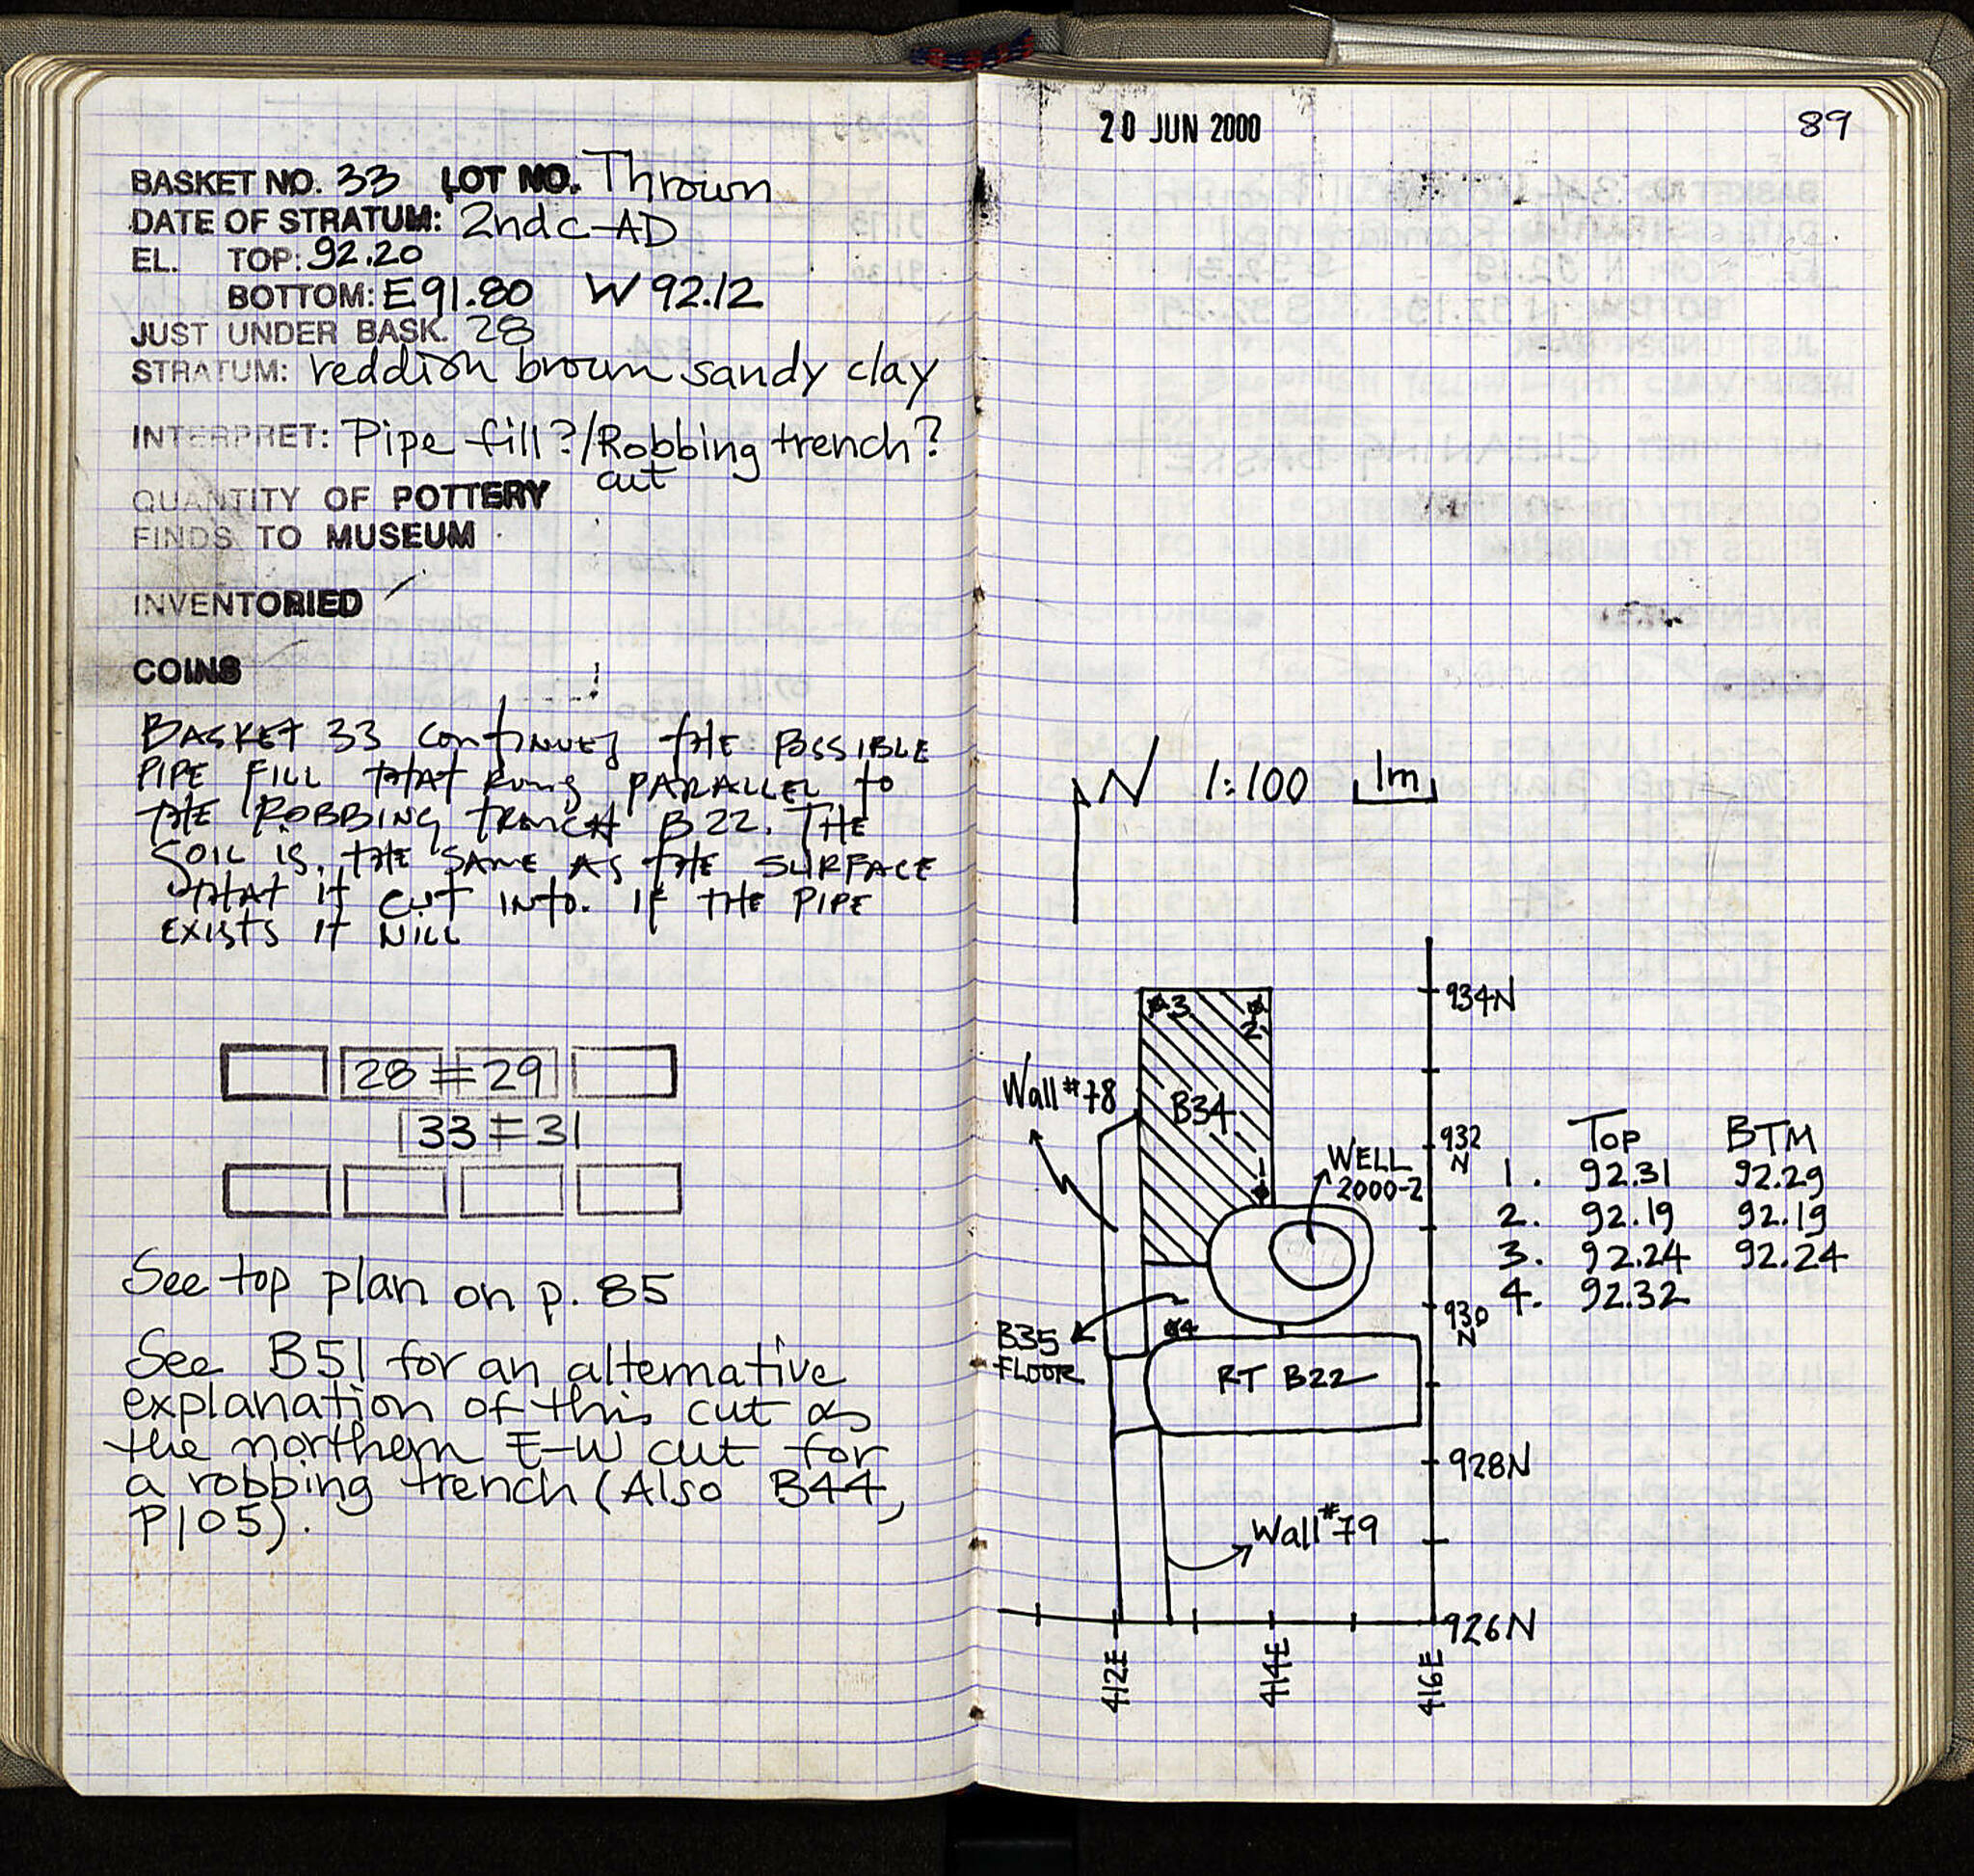 BASKET NO. 33 LOT NO. Thrown
DATE OF STRATUM: 2nd c AD
EL. TOP: 92.20
BOTTOM: E 91.80 W 92.12
JUST UNDER BASK. 28
STRATUM: reddish brown sandy clay
INTERPRET: Pipe fill?/Robbing trench?
cut
QUANTITY OF POTTERY
FINDS TO MUSEUM
INVENTORIED
COINS
BASKET 33 CONTINUES THE POSSIBLE
PIPE FILL THAT RUNS PARALLEL to
THE ROBBING TRENCH B22. THE
SOIL IS THE SAME AS THE SURFACE
THAT IT CUT INTO. IF THE PIPE
EXISTS IT WILL
28 = 29
33 = 31
See top plan on p. 85
See B51 for an alternative
explanation of this cut as
the northern E-W cut for
a robbing trench (Also B44,
P105).
20 JUN 2000
89
N 1:100 1m
934N
3
2
Wall #78
B34
932
N
1
WELL
2000-2
Top BTM
1. 92.31 92.29
2. 92.19 92.19
3. 92.24 92.24
4. 92.32
930
N
B35
FLOOR
4
RT B22
928N
Wall #79
926N
412E
414E
416E